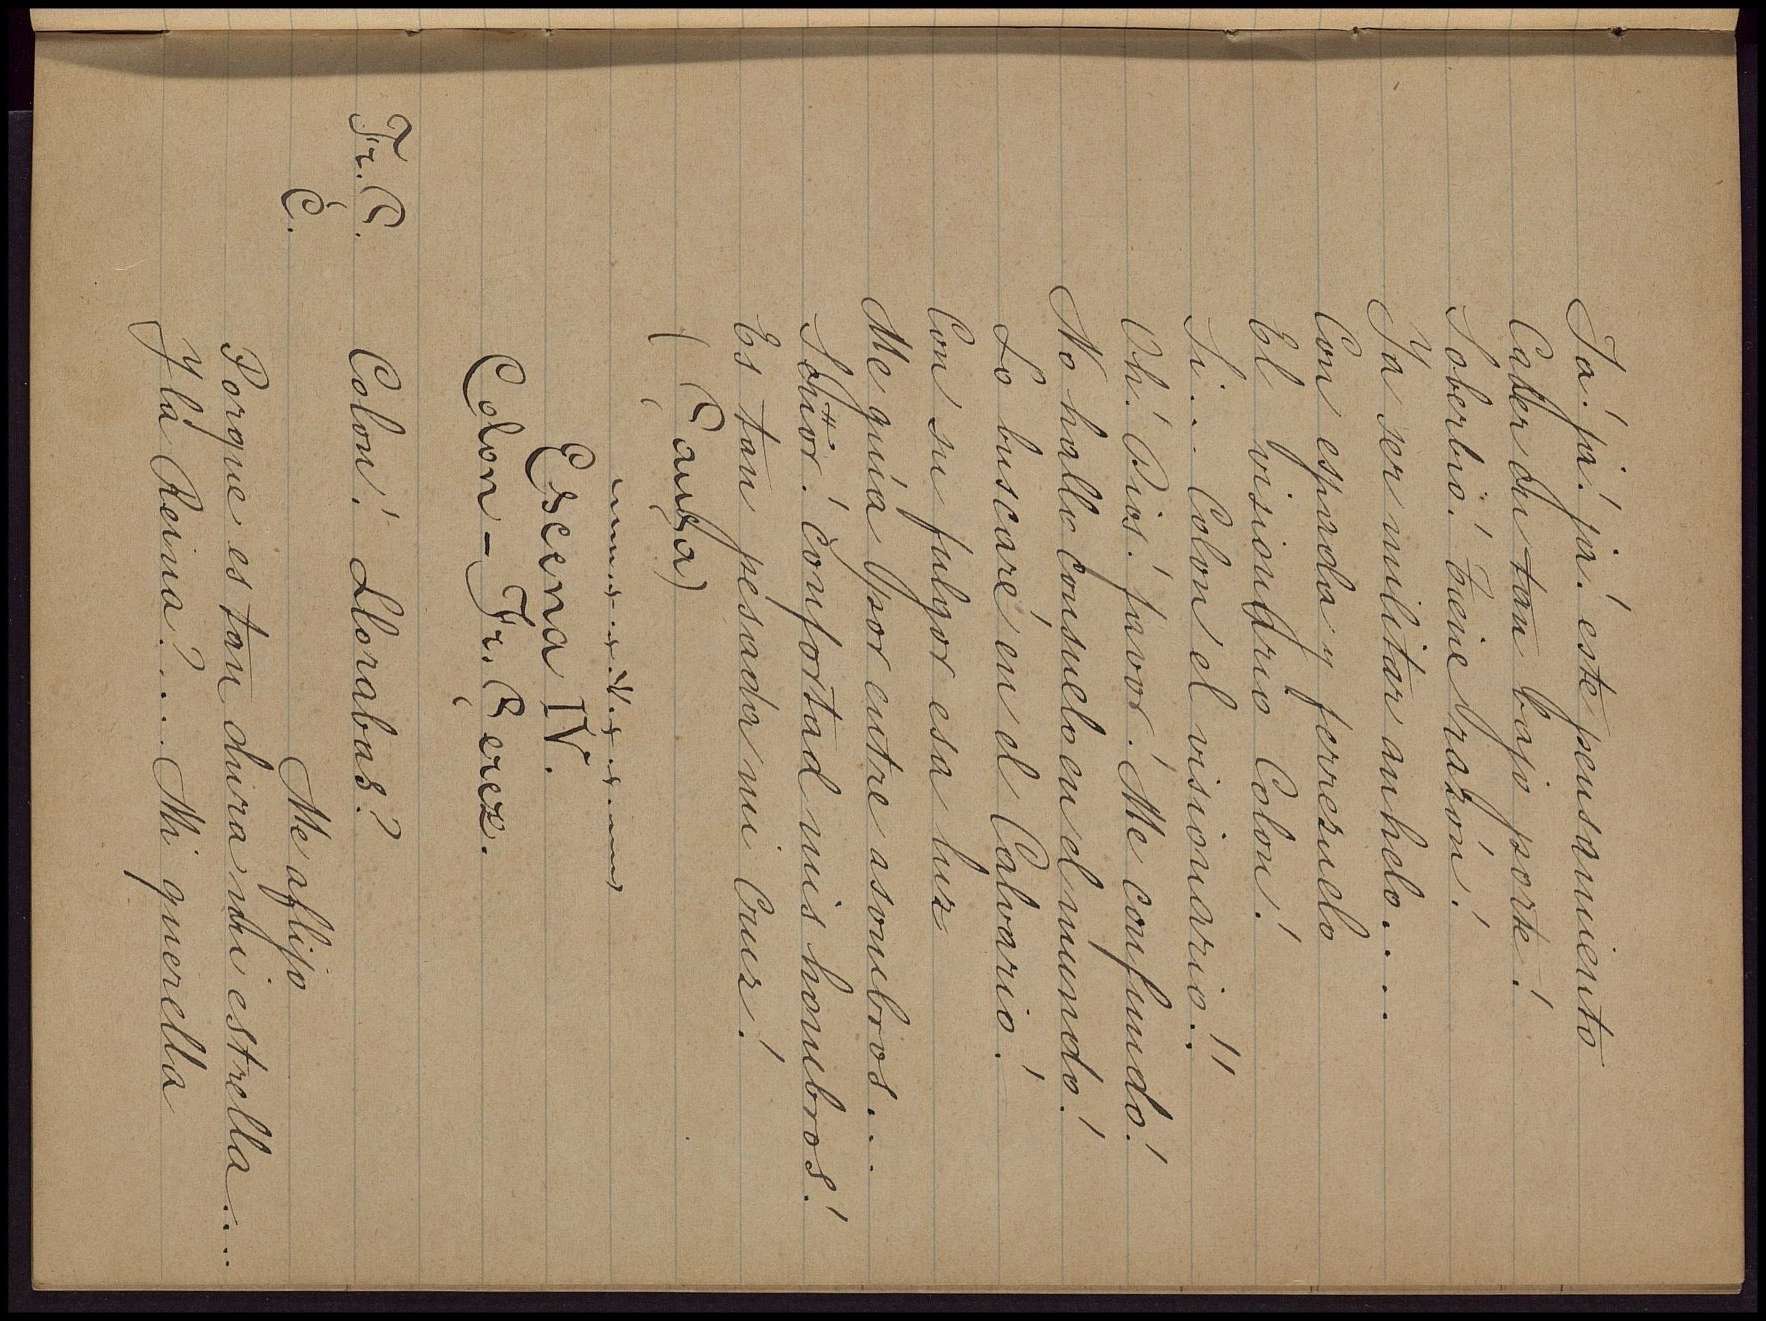 Já! já! já! este pensamiento
Caber en tan bajo porte!
Soberbio! Tiene razón!
Ya ser militar anhelo....
Con espada y ferreruelo
El visionario Colon!
Si... Colon el visionario..!!
Oh! Dios! favor! Me confundo!
No hallo consuelo en el mundo!
Lo buscaré en el Calvario!
Con su fulgor esa luz
Me guía por entre asombros...
Señor! confortad mis hombros!
Es tan pesada mi Cruz!
(Pausa)
Escena IV.
Colon - Fr. Perez.
Fr. P. Colon! Llorabas?
C. Me aflijo
Porque es tan dura mi estrella....
Y la Reina?... Mi querella